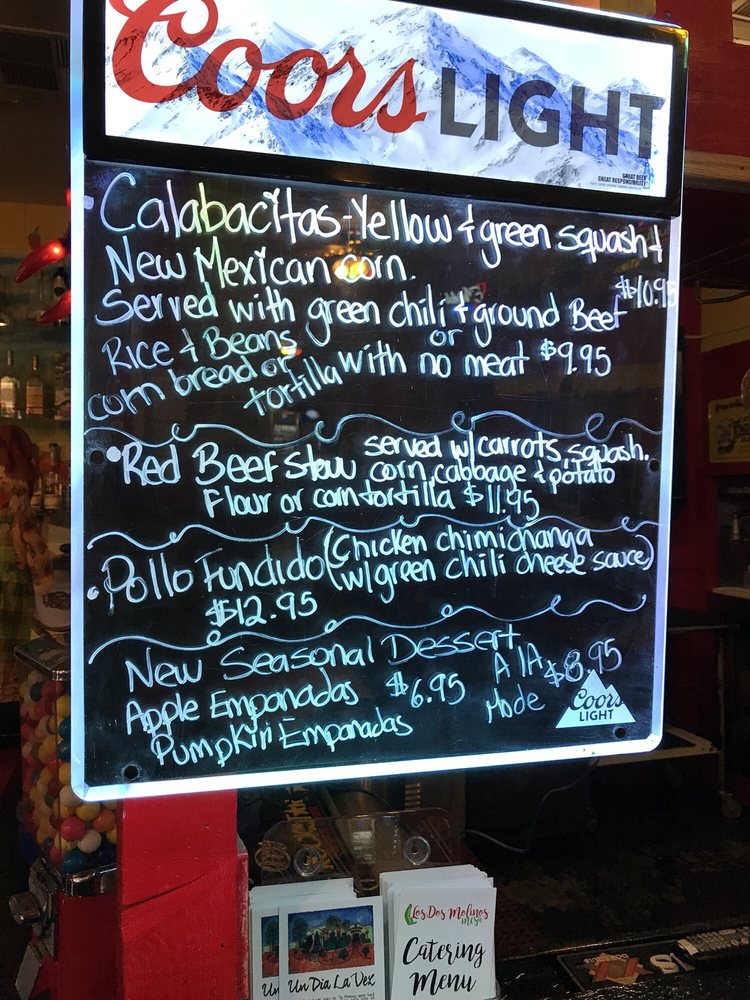 Coors LIGHT
GREAT BEER
GREAT RESPONSIBILITY
Calabacitas - Yellow & green squash &
New Mexican corn.
$10.95
Served with green chili & ground Beef
Rice & Beans or
corn bread or with no meat $9.95
tortilla
• Red Beef stew served w/carrots, squash,
corn, cabbage & potato
Flour or corn tortilla $11.95
• Pollo Fundido (Chicken chimichanga
w/green chili cheese sauce)
$12.95
New Seasonal Dessert
Apple Empanadas $6.95 A lA $8.95
Mode
Pumpkin Empanadas
Coors
LIGHT
Los Dos Molinos
MESA
Catering
Menu
Un Dia La Vez
Un